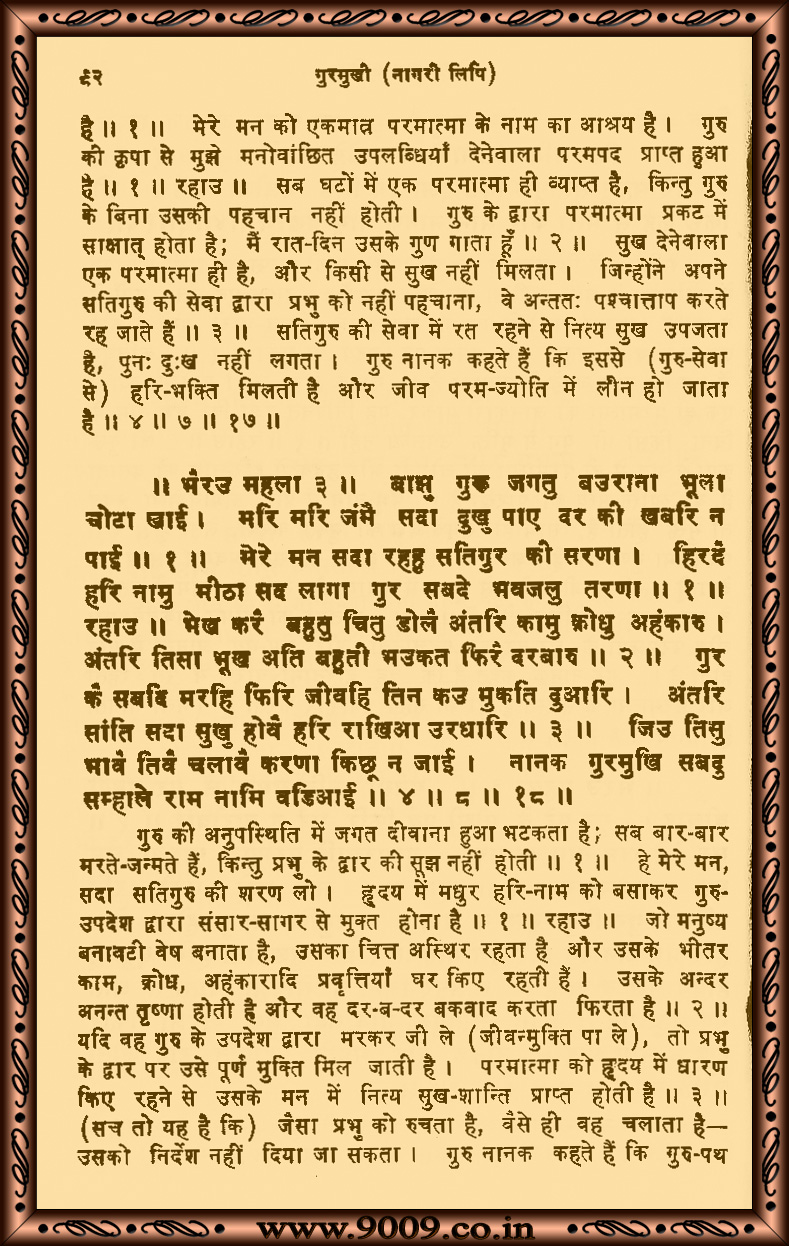 ६२ गुरमुखी (नागरी लिपि)
है ॥ १ ॥ मेरे मन को एकमात्र परमात्मा के नाम का आश्रय है । गुरु
की कृपा से मुझे मनोवांछित उपलब्धियाँ देनेवाला परमपद प्राप्त हुआ
है ॥ १ ॥ रहाउ ॥ सब घटों में एक परमात्मा ही व्याप्त है, किन्तु गुरु
के बिना उसकी पहचान नहीं होती । गुरु के द्वारा परमात्मा प्रकट में
साक्षात् होता है; मैं रात-दिन उसके गुण गाता हूँ ॥ २ ॥ सुख देनेवाला
एक परमात्मा ही है, और किसी से सुख नहीं मिलता । जिन्होंने अपने
सतिगुरु की सेवा द्वारा प्रभु को नहीं पहचाना, वे अन्ततः पश्चात्ताप करते
रह जाते हैं ॥ ३ ॥ सतिगुरु की सेवा में रत रहने से नित्य सुख उपजता
है, पुनः दुःख नहीं लगता । गुरु नानक कहते हैं कि इससे (गुरु-सेवा
से) हरि-भक्ति मिलती है और जीव परम-ज्योति में लीन हो जाता
है ॥ ४ ॥ ७ ॥ १७ ॥
॥ भैरउ महला ३ ॥ बाझु गुरू जगतु बउराना भूला
चोटा खाई । मरि मरि जंमै सदा दुखु पाए दर की खबरि न
पाई ॥ १ ॥ मेरे मन सदा रहहु सतिगुर की सरणा । हिरदै
हरि नामु मीठा सद लागा गुर सबदे भवजलु तरणा ॥ १ ॥
रहाउ ॥ भेख करै बहुतु चितु डोलै अंतरि कामु क्रोधु अहंकारु ।
अंतरि तिसा भूख अति बहुती भउकत फिरै दरबारु ॥ २ ॥ गुर
कै सबदि मरहि फिरि जीवहि तिन कउ मुकति दुआरि । अंतरि
सांति सदा सुखु होवै हरि राखिआ उरधारि ॥ ३ ॥ जिउ तिसु
भावै तिवै चलावै करणा किछू न जाई । नानक गुरमुखि सबदु
सम्हाले राम नामि वडिआई ॥ ४ ॥ ८ ॥ १८ ॥
गुरु की अनुपस्थिति में जगत दीवाना हुआ भटकता है; सब बार-बार
मरते-जन्मते हैं, किन्तु प्रभु के द्वार की सूझ नहीं होती ॥ १ ॥ हे मेरे मन,
सदा सतिगुरु की शरण लो । हृदय में मधुर हरि-नाम को बसाकर गुरु-
उपदेश द्वारा संसार-सागर से मुक्त होना है ॥ १ ॥ रहाउ ॥ जो मनुष्य
बनावटी वेष बनाता है, उसका चित्त अस्थिर रहता है और उसके भीतर
काम, क्रोध, अहंकारादि प्रवृत्तियाँ घर किए रहती हैं । उसके अन्दर
अनन्त तृष्णा होती है और वह दर-ब-दर बकवाद करता फिरता है ॥ २ ॥
यदि वह गुरु के उपदेश द्वारा मरकर जी ले (जीवन्मुक्ति पा ले), तो प्रभु
के द्वार पर उसे पूर्ण मुक्ति मिल जाती है । परमात्मा को हृदय में धारण
किए रहने से उसके मन में नित्य सुख-शान्ति प्राप्त होती है ॥ ३ ॥
(सच तो यह है कि) जैसा प्रभु को रुचता है, वैसे ही वह चलाता है—
उसको निर्देश नहीं दिया जा सकता । गुरु नानक कहते हैं कि गुरु-पथ
www.9009.co.in